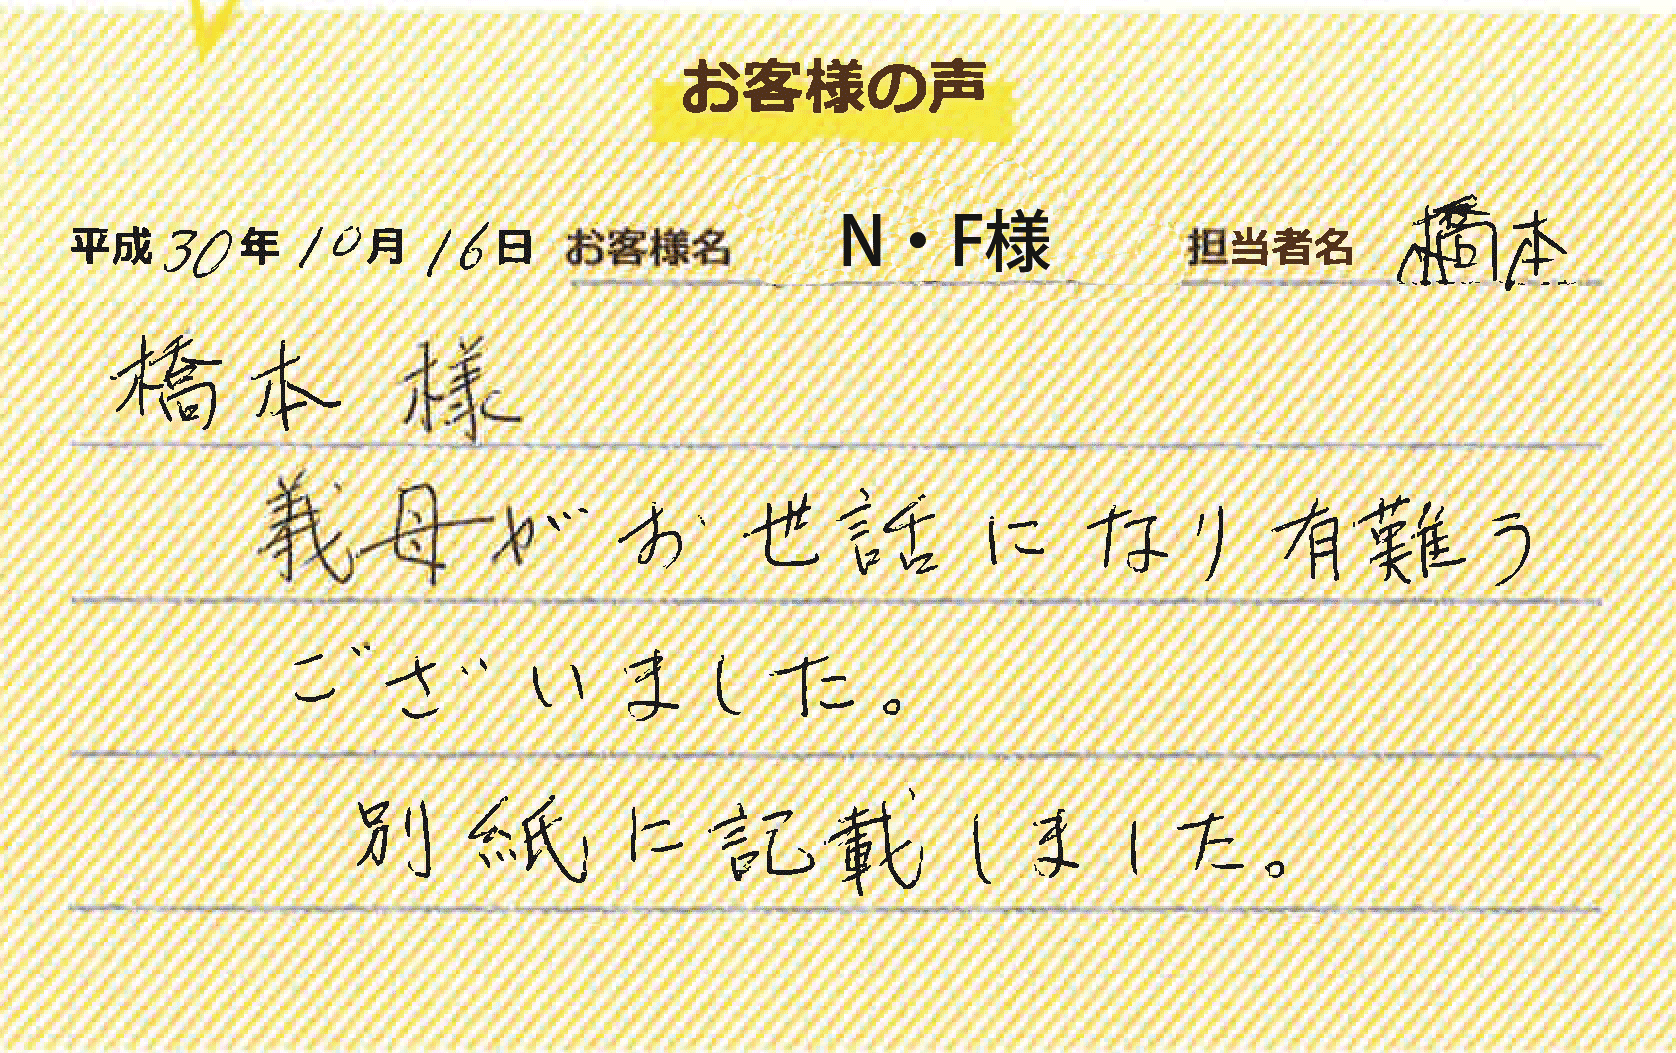 お客様の声
平成30年10月16日 お客様名 N・F様 担当者名 橋本
橋本 様
義母がお世話になり有難う
ございました。
別紙に記載しました。